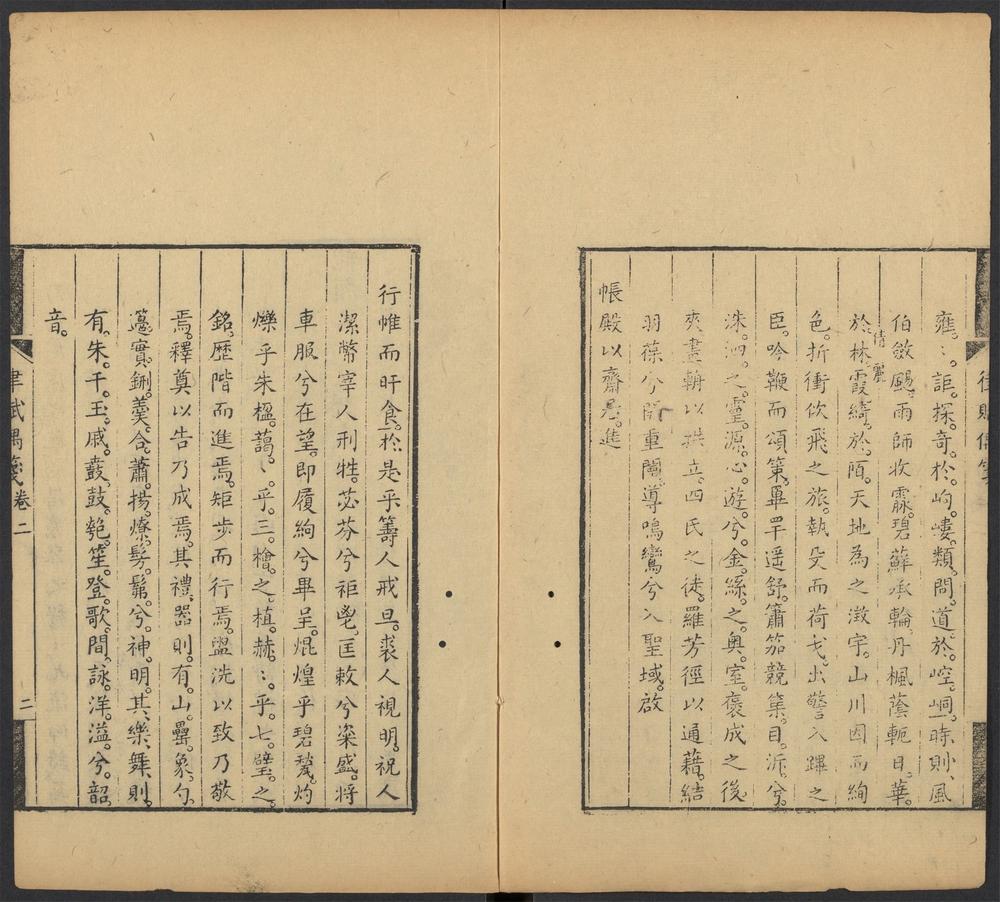 雍〻。詎。探。奇。於。岣。嶁。類。問。道。於。崆。峒。時。則、風
伯斂颸。雨師收霡。碧蘇承輪。丹楓蔭軛。日。華。
倩麗
於。林。霞綺。於。陌。天地為之澂宇。山川因而絢
色。折衝佽飛之旅。執殳而荷戈。出警入蹕之
臣。吟鞭而頌策。畢罕遥舒。簫笳競集。目。泝。兮。
洙。泗。之。靈。源。心。遊。兮。金。絲。之。奥。室。褒成之後。
夾晝輈以拱立。四民之徒。羅芳徑以通藉。結
羽葆兮重闉。導鳴鸞兮入聖域。啟
帳殿以齋。進
行帷而旰食。於是乎籌人戒旦。裘人視明。祝人
潔幣宰人刑牲。苾芬兮秬鬯。匡敕兮粢盛。將
車服兮在望。即履絢兮畢呈。焜煌乎碧甃。灼
爍乎朱楹。藹〻乎。三。檜。之。植。赫〻乎。七。璧。之。
銘。歷階而進焉。矩步而行焉。盥洗以致乃敬
焉。釋奠以告乃成焉。其禮、器則。有。山。罍。象。勺。
籩。實。鉶。羹。合。蕭。揚。燎。髣。髴。兮。神。明。其、樂、舞、則。
有。朱。干。玉。戚。鼖。鼓。匏。笙。登。歌。間。詠。洋。溢。兮。韶
音。
律賦偶箋 卷二
二